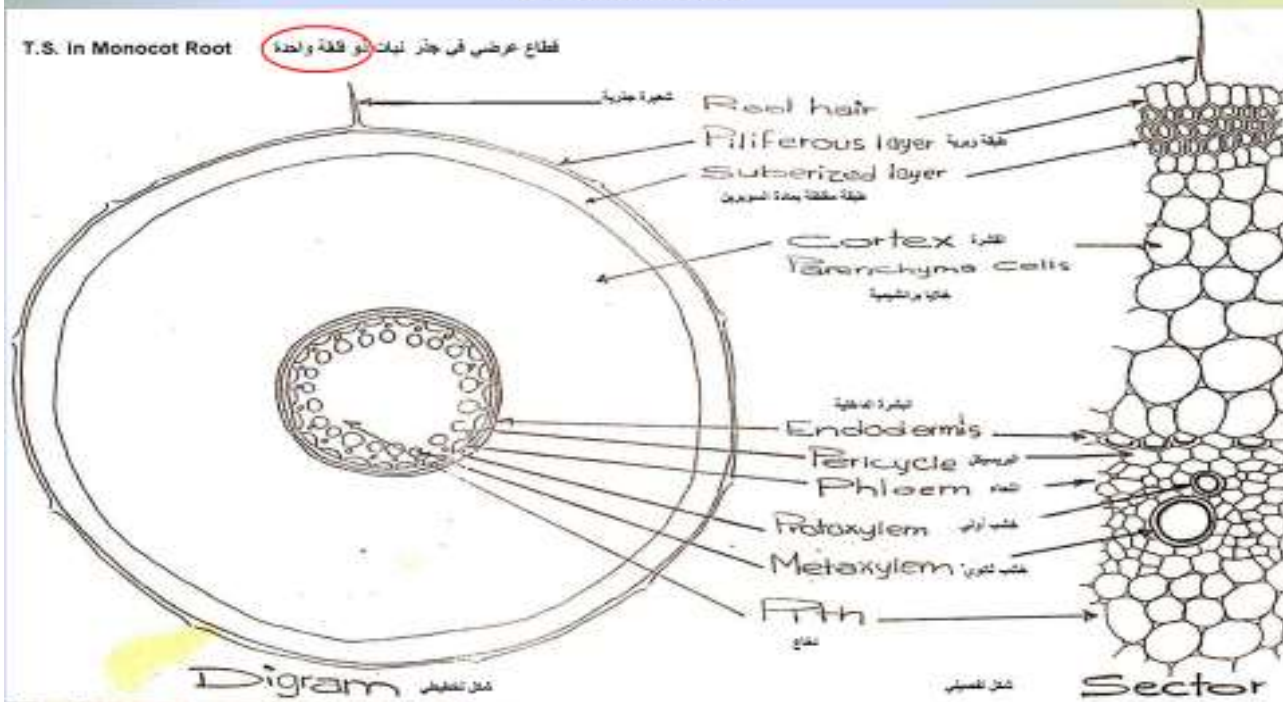 T.S. in Monocot Root قطاع عرضي في جذر نبات ذو فلقة واحدة
شعيرة جذرية Root hair
Piliferous layer طبقة وبرية
Suberized layer
طبقة مغلظة بمادة السوبرين
Cortex القشرة
Parenchyma cells
خلايا برانشيمية
البشرة الداخلية
Endodermis
Pericycle البريسيكل
Phloem اللحاء
Protoxylem خشب أولي
Metaxylem خشب ثانوي
Pith
نخاع
Digram شكل تخطيطي
شكل تفصيلي Sector